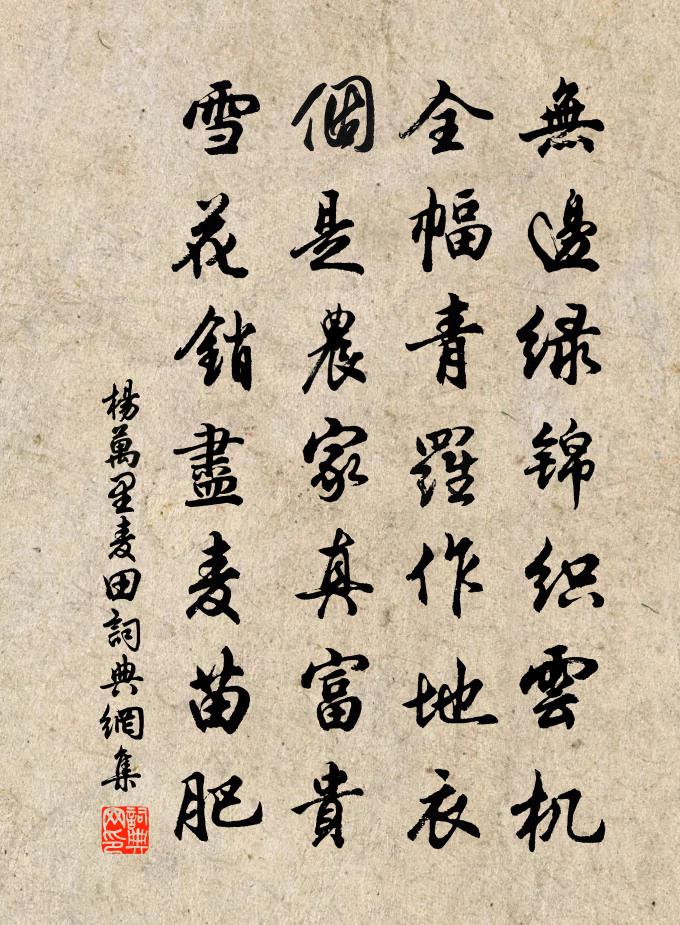 無邊绿锦织雲机
全幅青羅作地衣
個是農家真富貴
雪花銷盡麦苗肥
楊萬里麦田詞典網集
詞典网印